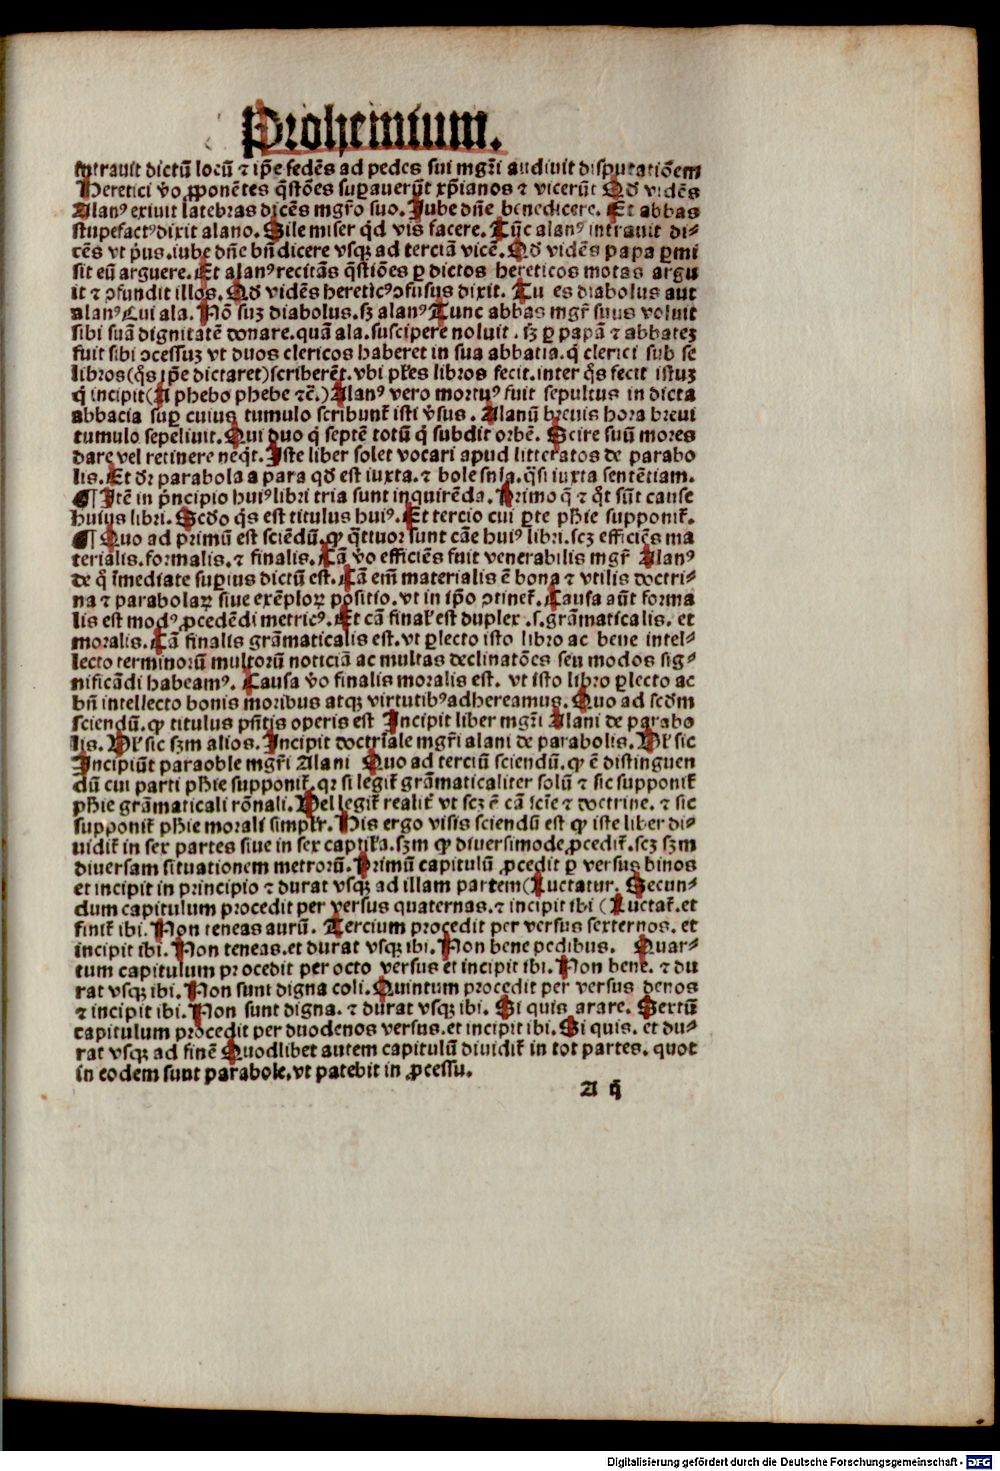 Prohemium.
intrauit dictū locū ⁊ ip̄e sedēs ad pedes sui mgr̄i audiuit disputatiōem
Heretici v̄o ꝓponētes q̄stōes suꝑauerūt xp̄ianos ⁊ vicerūt Qd̄ vidēs
Alanꝰ exiuit latebras dicēs mgr̄o suo. Jube dn̄e benedicere. Et abbas
stupefactꝰ dixit alano. Sile miser qͥd vis facere. Tūc alanꝰ intrauit di⸗
cēs vt pͥus. iube dn̄e bn̄dicere vsqꝫ ad terciā vicē. Qd̄ vidēs papa ꝑmi
sit eū arguere. Et alanꝰ recitās q̄stiōes ꝑ dictos hereticos motas argu
it ⁊ ꝯfundit illos. Qd̄ vidēs hereticꝰ ꝯfusus dixit. Tu es diabolus aut
alanꝰ Cui ala. Nō suꝫ diabolus. sꝫ alanꝰ Tunc abbas mgr̄ suus voluit
sibi suā dignitatē donare. quā ala. suscipere noluit. sꝫ ꝑ papā ⁊ abbateꝫ
fuit sibi ꝯcessuꝫ vt duos clericos haberet in sua abbatia. qͥ clerici sub se
libros (qͦs ip̄e dictaret) scriberēt. vbi pl̄es libros fecit. inter qͦs fecit istuꝫ
qͥ incipit (A phebo phebe ⁊c̄.) Alanꝰ vero mortuꝰ fuit sepultus in dicta
abbacia suꝑ cuius tumulo scribunt̄ isti v̄sus. Alanū breuis hora breui
tumulo sepeliuit. Qui duo qͥ septē totū qͥ subdit orbē. Scire suū mores
dare vel retinere neqͥt. Iste liber solet vocari apud litteratos de parabo
lis. Et dr̄ parabola a para qd̄ est iuxta. ⁊ bole snīa. q̄si iuxta sentētiam.
¶ Itē in pͥncipio huiꝰ libri tria sunt inquirēda. Primo q̄ ⁊ qͦt sūt cause
huius libri. Scd̄o qͥs est titulus huiꝰ. Et tercio cui ꝑte ph̄ie supponit̄.
¶ Quo ad primū est sciēdū. ꝙ q̄ttuor sunt cāe huiꝰ libri. scꝫ efficiēs ma
terialis. formalis. ⁊ finalis. Cā v̄o efficiēs fuit venerabilis mgr̄ Alanꝰ
de qͦ īmediate suꝑius dictū est. Cā em̄ materialis ē bona ⁊ vtilis doctri⸗
na ⁊ parabolaꝝ siue exēploꝝ positio. vt in ip̄o ꝯtinet̄. Causa aūt forma
lis est modꝰ ꝓcedēdi metricꝰ. Et cā final̄ est duplex .s. grāmaticalis. et
moralis. Cā finalis grāmaticalis est. vt ꝑlecto isto libro ac bene intel⸗
lecto terminorū multorū noticiā ac multas declinatōes seu modos sig⸗
nificādi habeamꝰ. Causa v̄o finalis moralis est. vt isto libro ꝑlecto ac
bn̄ intellecto bonis moribus atqꝫ virtutibꝰ adhereamus. Quo ad scd̄m
sciendū. ꝙ titulus pn̄tis operis est Incipit liber mgr̄i Alani de parabo
lis. Vl̄ sic sꝫm alios. Incipit doctrīale mgr̄i alani de parabolis. Vl̄ sic
Incipiūt paraoble mgr̄i Alani Quo ad terciū sciendū. ꝙ ē distinguen
dū cui parti ph̄ie supponit̄. qꝛ si legit̄ grāmaticaliter solū ⁊ sic supponit̄
ph̄ie grāmaticali rōnali. Vel legit̄ realit̄ vt scꝫ ē cā scīe ⁊ doctrine. ⁊ sic
supponit̄ ph̄ie morali simplr̄. His ergo visis sciendū est ꝙ iste liber di⸗
uidit̄ in sex partes siue in sex captl̄a. sꝫm ꝙ diuersimode ꝓcedit̄. scꝫ sꝫm
diuersam situationem metrorū. Primū capitulū ꝓcedit ꝑ versus binos
et incipit in principio ⁊ durat vsqꝫ ad illam partem (Luctatur. Secun⸗
dum capitulum procedit per versus quaternas. ⁊ incipit ibi (Luctat̄. et
finit̄ ibi. Non teneas aurū. Tercium procedit per versus sexternos. et
incipit ibi. Non teneas. et durat vsqꝫ ibi. Non bene pedibus. Quar⸗
tum capitulum procedit per octo versus et incipit ibi. Non bene. ⁊ du
rat vsqꝫ ibi. Non sunt digna coli. Quintum procedit per versus denos
⁊ incipit ibi. Non sunt digna. ⁊ durat vsqꝫ ibi. Si quis arare. Sextū
capitulum procedit per duodenos versus. et incipit ibi. Si quis. et du⸗
rat vsqꝫ ad finē Quodlibet autem capitulū diuidit̄ in tot partes. quot
in eodem sunt parabole. vt patebit in ꝓcessu.
A ij
Digitalisierung gefördert durch die Deutsche Forschungsgemeinschaft - DFG